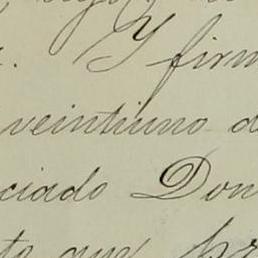 . Y firm
veintiuno d
ciado Don
to que pr